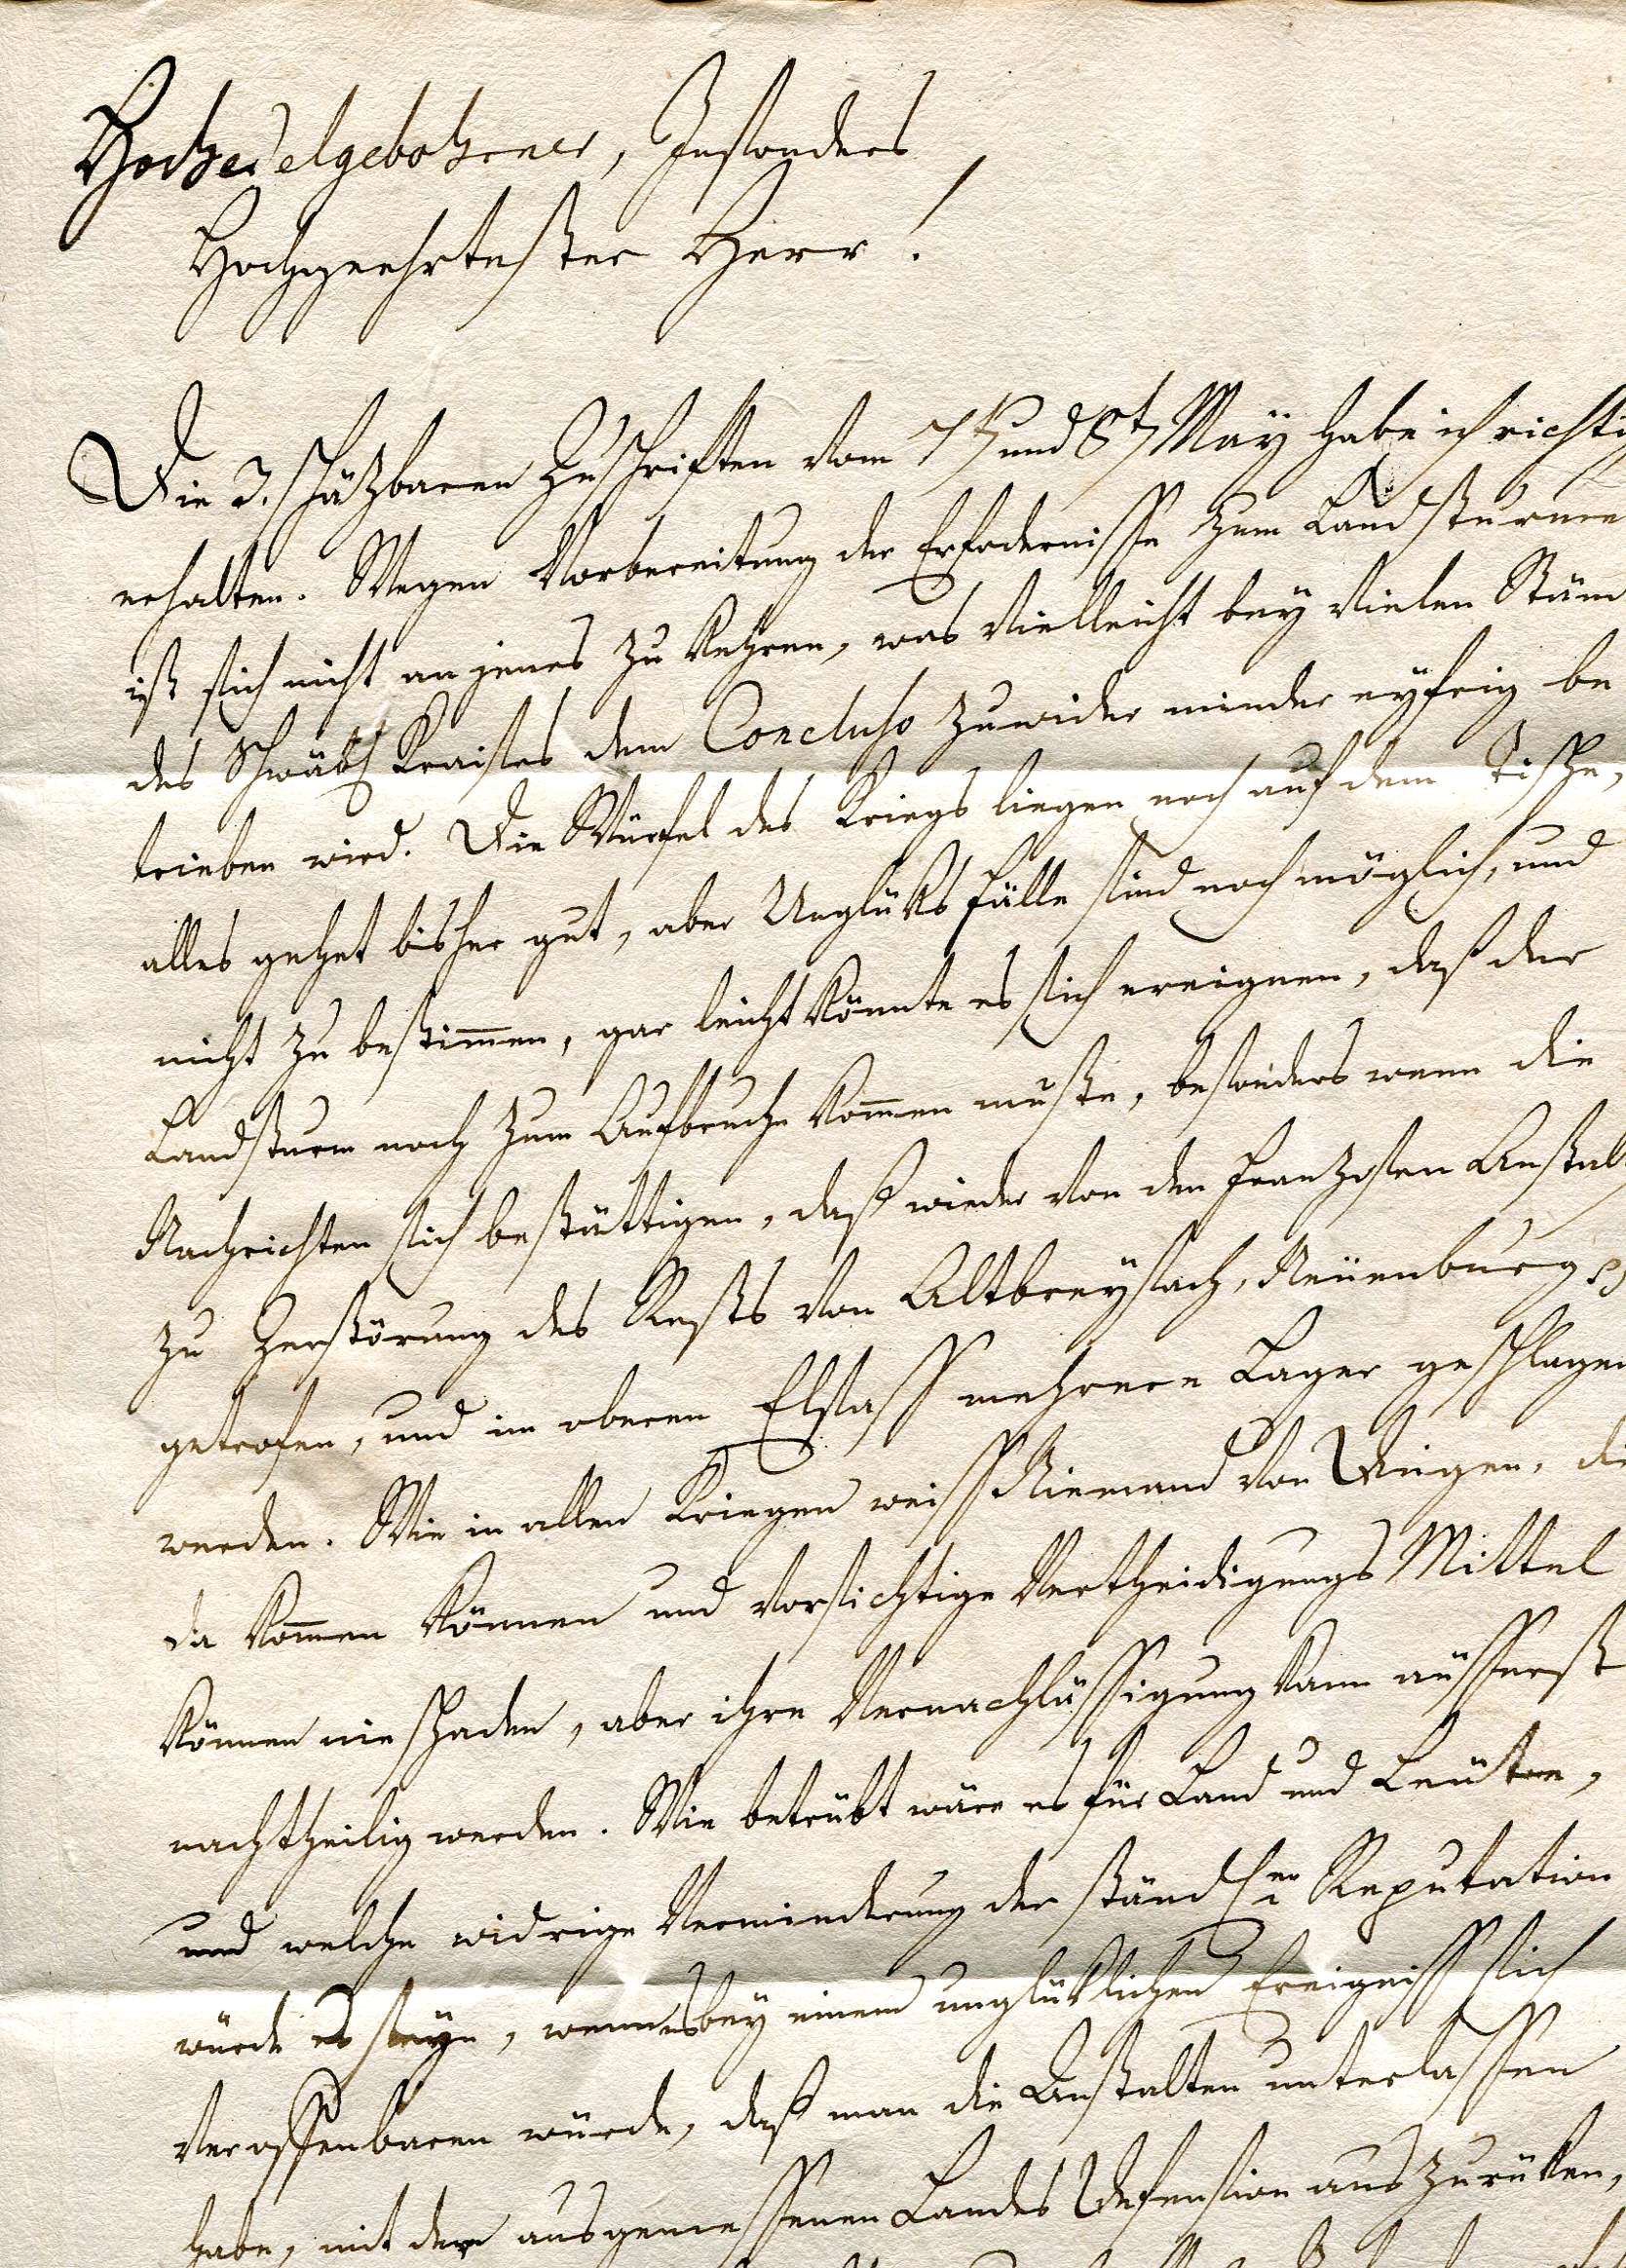 Hochedelgebohrner, Insonders
Hochgeehrtester Herr!
Die 2. schäzbaren Zuschriften vom 7t und 8t May habe ich richti
erhalten. Wegen Vorbereitung der Erfodernisse zum Landsturme
ist sich nicht an jenes zu kehren, was vielleicht bey vielen Stän
des Schwäb Kraises dem Concluso zuwider minder eyfrig be
trieben wird. Die Würfel des Kriegs liegen noch auf dem Tische,
alles gehet bisher gut, aber Unglüks Fälle sind noch möglich, und
nicht zu bestimen, gar leicht könnte es sich ereignen, daß der
Landsturm noch zum Aufbruche komen muste, besonders wenn die
Nachrichten sich bestättigen, daß wieder von den Franzosen Anstalt
zu Zerstörung des Rests von Altbreysach, Neüenburg
getrofen, und im oberen Elsass mehrere Lager geschlagen
werden. Wie in allen Kriegen weiss Niemand von Dingen, di
da komen können und vorsichtige Vertheidigungs Mittel
können nie schaden, aber ihre Vernachlässigung kann äusserst
nachtheilig werden. Wie betrübt wäre es für Land und Leüte,
und welche widrige Verminderung der ständ Reputation
würde es seyn, wenn es bey einem unglüklichen Ereigniss sich
verossenbaren würde, daß man die Anstalten unterlassen
habe, mit der ausgemessenen Landes Defension auszurüken,